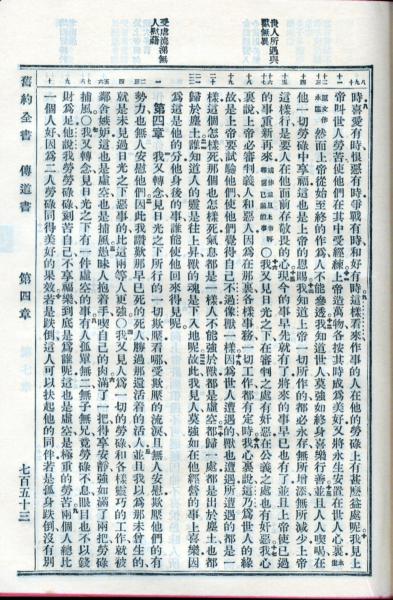 世人所遇與獸無異
時喜愛有時恨惡有時爭戰有時和好有時這樣看來作事的人在他的勞碌上有甚麼益處呢我見上
帝叫世人勞苦使他們在其中受經練上帝造萬物各按其時成爲美好又將永生安置在世人心裏
原文作永遠然而上帝從始至終的作爲人不能參透我知道世人莫強如終身喜樂行善並且人人喫喝在
他一切勞碌中享福這也是上帝的恩賜我知道上帝一切所作的都必永存無所增添無所減少上帝
這樣行是要人在他面前存敬畏的心現今的事早先就有了將來的事早已也有了並且上帝使已過
的事重新再來○我又見日光之下在審判之處有奸惡在公義之處也有奸惡我心
裏說上帝必審判義人和惡人因爲在那裏各樣事務一切工作都有定時我心裏說這乃爲世人的緣
故是上帝要試驗他們使他們覺得自己不過像獸一樣因爲世人遭遇的獸也遭遇所遭遇的都是一
樣這個怎樣死那個也怎樣死氣息都是一樣人不能強於獸都是虛空都歸一處都是出於塵土也都
歸於塵土誰知道人的靈是往上昇獸的魂是下入地呢故此我見人莫強如在他經營的事上喜樂因
爲這是他的分他身後的事誰能使他回來得見呢
受虐流淚無人慰藉
第四章 我又轉念見日光之下所行的一切欺壓看哪受欺壓的流淚且無人安慰欺壓他們的有
勢力也無人安慰他們因此我讚歎那早已死的死人勝過那還活着的活人並且我以爲那未曾生的
就是未見過日光之下惡事的比這兩等人更強○我又見人爲一切的勞碌和各樣靈巧的工作就被
鄰舍嫉妒這也是虛空也是捕風愚昧人抱着手喫自己的肉滿了一把得享安靜強如滿了兩把勞碌
捕風○我又轉念見日光之下有一件虛空的事有人孤單無二無子無兄竟勞碌不息眼目也不以錢
財爲足他說我勞勞碌碌刻苦自己不享福樂到底是爲誰呢這也是虛空是極重的勞苦兩個人總比
一個人好因爲二人勞碌同得美好的果效若是跌倒這人可以扶起他的同伴若是孤身跌倒沒有別
舊約全書 傳道書 第四章 七百五十三